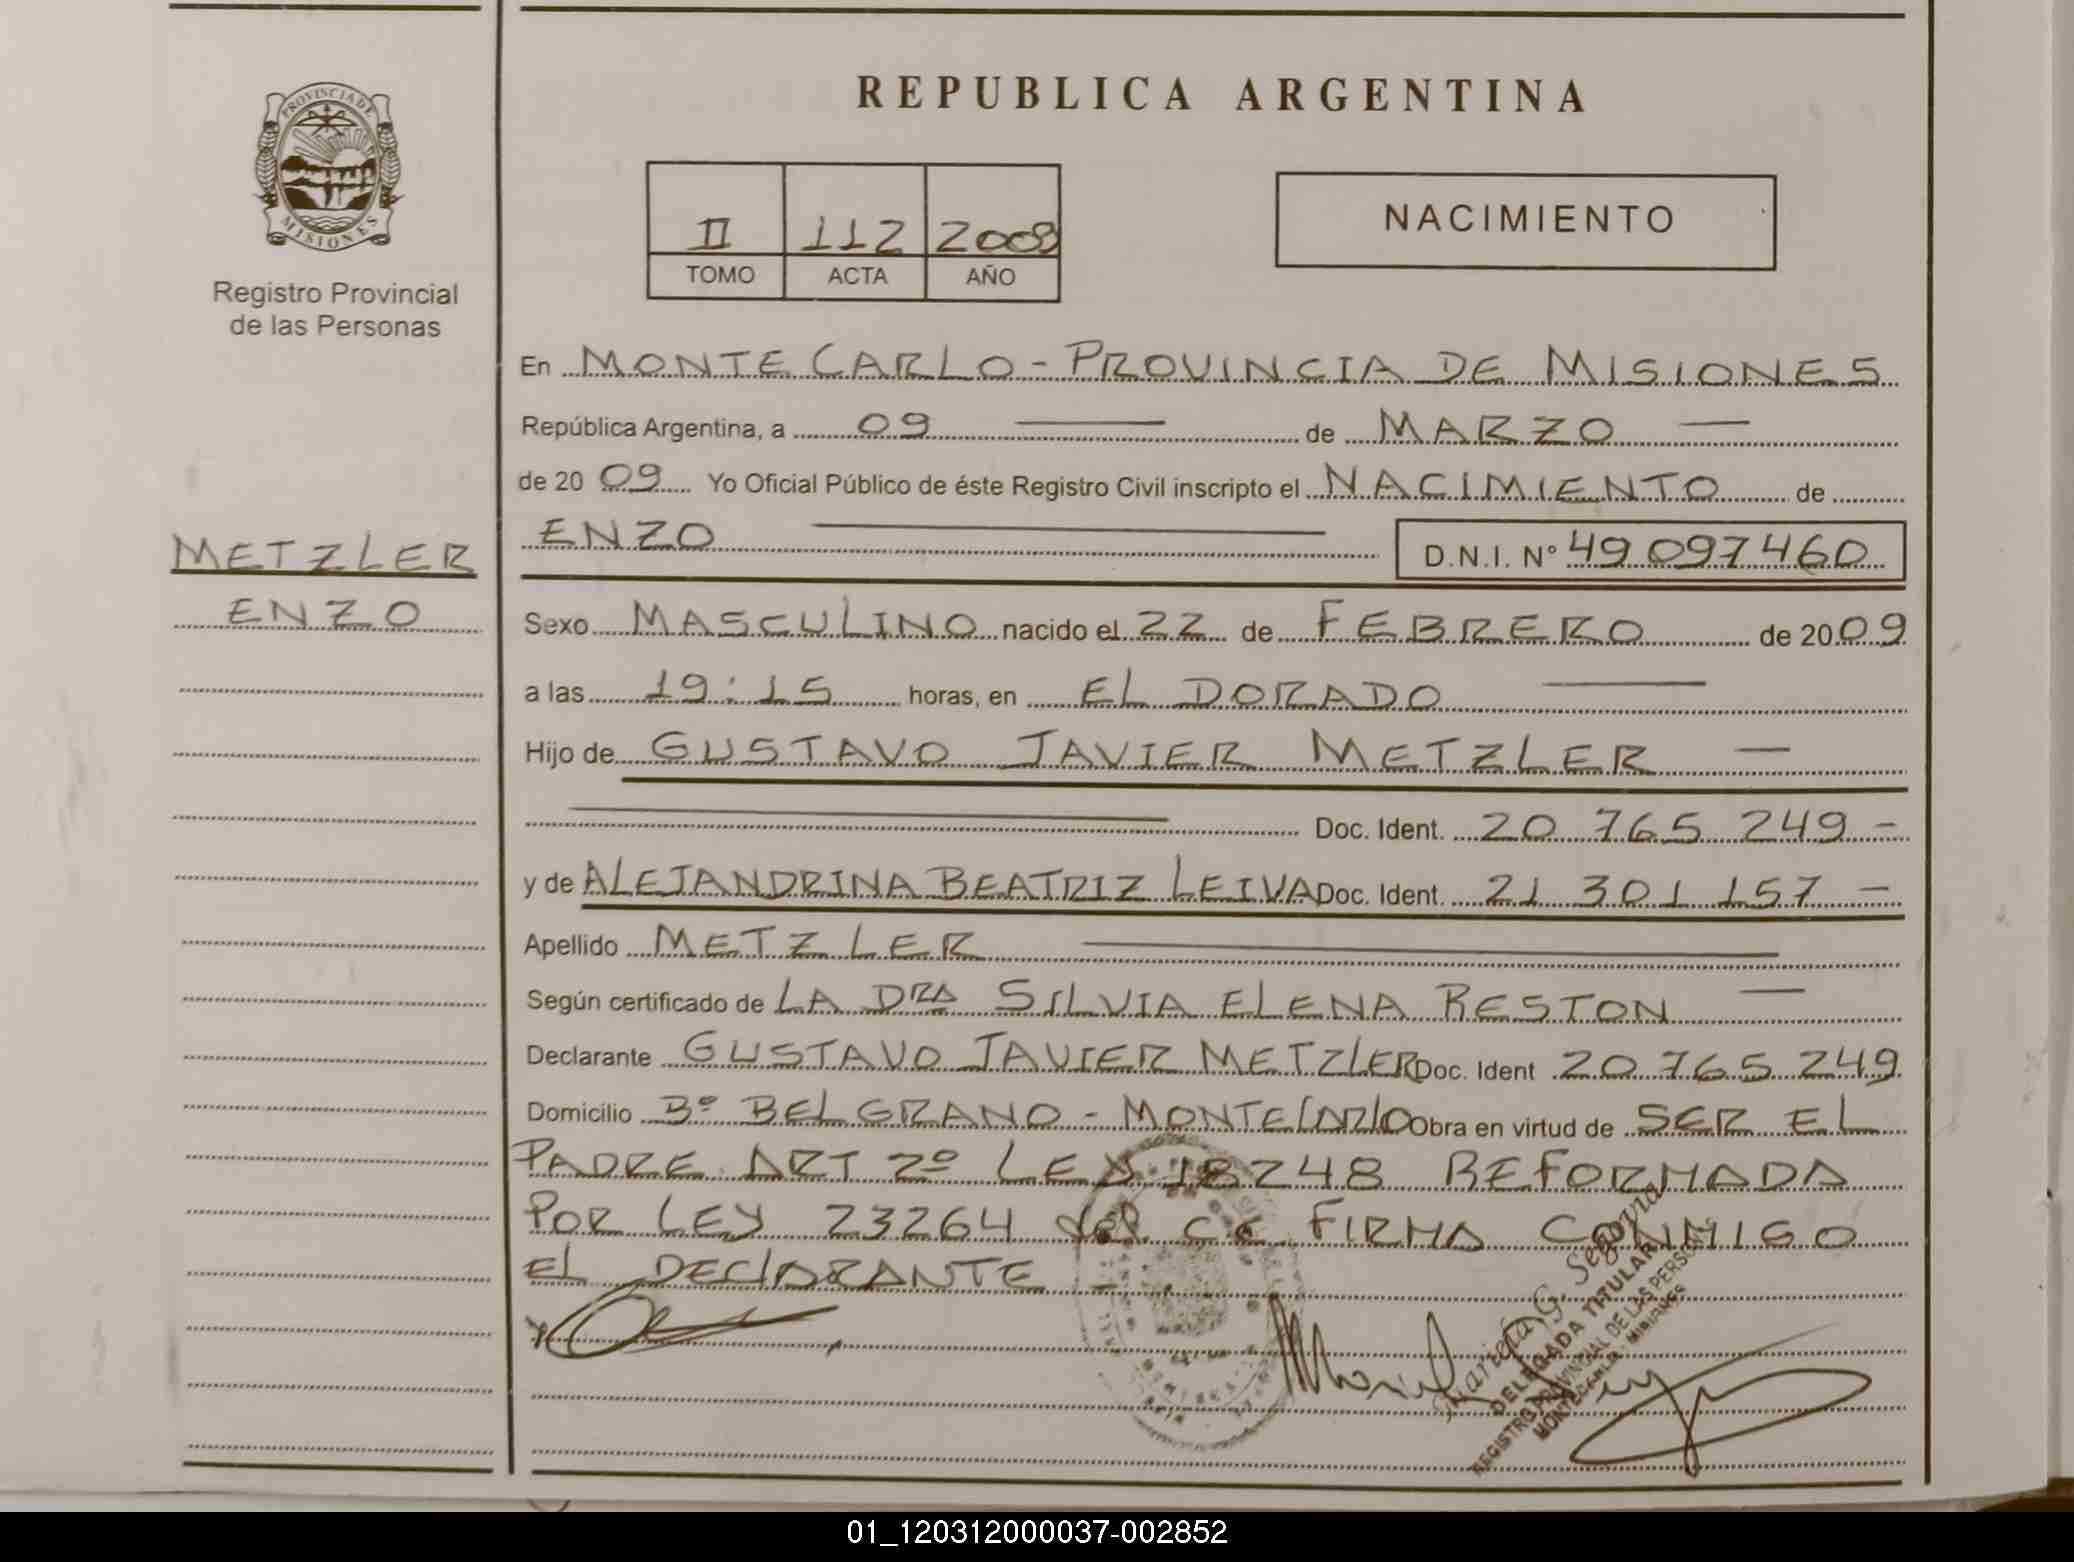 PROVINCIA DE
MISIONES
Registro Provincial
de las Personas
METZLER
ENZO
REPUBLICA ARGENTINA
II 112 2009
TOMO ACTA AÑO
NACIMIENTO
En MONTECARLO - PROVINCIA DE MISIONES
República Argentina, a 09 de MARZO
de 2009 Yo Oficial Público de éste Registro Civil inscripto el NACIMIENTO de
ENZO D.N.I. Nº 49 097460
Sexo MASCULINO nacido el 22 de FEBRERO de 2009
a las 19:15 horas, en EL DORADO
Hijo de GUSTAVO JAVIER METZLER
Doc. Ident. 20 765 249 -
y de ALEJANDRINA BEATRIZ LEIVA Doc. Ident. 21 301 157 -
Apellido METZLER
Según certificado de LA DRA SILVIA ELENA RESTON
Declarante GUSTAVO JAVIER METZLER Doc. Ident 20 765 249
Domicilio Bº BELGRANO - MONTECARLO Obra en virtud de SER EL
PADRE. ART 2º LEY 18248 REFORMADA
POR LEY 23264 del CC FIRMA CONMIGO
EL DECLARANTE -
Mariela G. Segovia
DELEGADA TITULAR
REGISTRO PROVINCIAL DE LAS PERSONAS
MONTECARLO - MISIONES
01_120312000037-002852